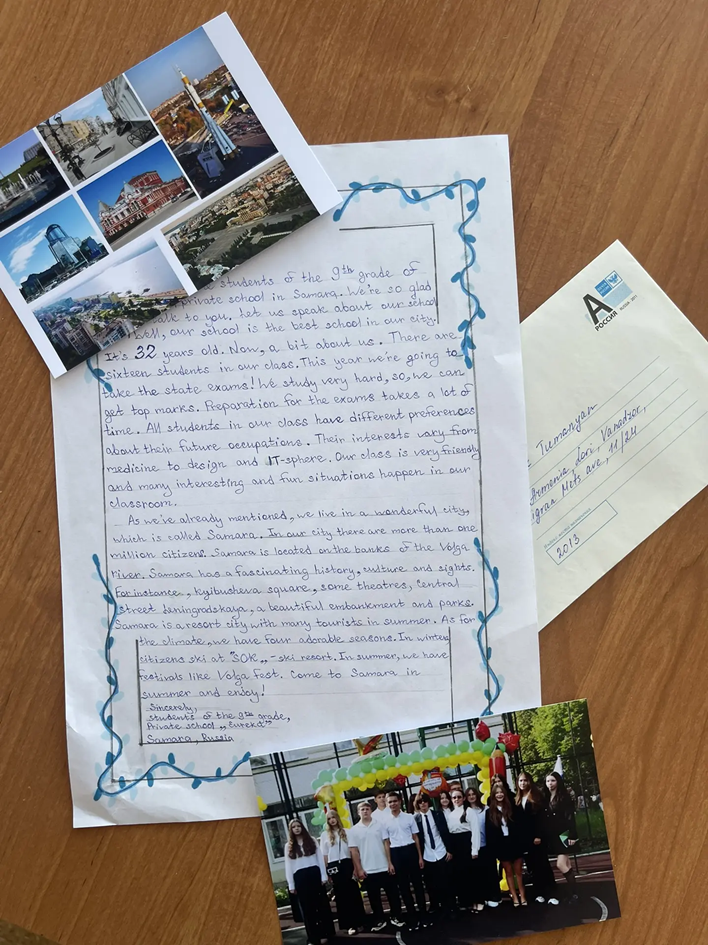 students of the 9th grade of
private school in Samara. We're so glad
talk to you. Let us speak about our school
Well, our school is the best school in our city.
It's 32 years old. Now, a bit about us. There are
sixteen students in our class. This year we're going to
take the state exams! We study very hard, so, we can
get top marks. Preparation for the exams takes a lot of
time. All students in our class have different preferences
about their future occupations. Their interests vary from
medicine to design and IT-sphere. Our class is very friendly
and many interesting and fun situations happen in our
classroom.
As we've already mentioned, we live in a wonderful city,
which is called Samara. In our city there are more than one
million citizens. Samara is located on the banks of the Volga
river. Samara has a fascinating history, culture and sights.
For instance, Kyibusheva square, some theatres, central
street Leningradskaya, a beautiful embankment and parks.
Samara is a resort city with many tourists in summer. As for
the climate, we have four adorable seasons. In winter
citizens ski at "SOK„ - ski resort. In summer, we have
festivals like Volga Fest. Come to Samara in
summer and enjoy!
Sincerely,
students of the 9th grade,
Private school „Eureka"
Samara, Russia
А
РОССИЯ
Tumanyan
Armenia, Lori, Vanadzor,
Mets ave, 11/24
2013